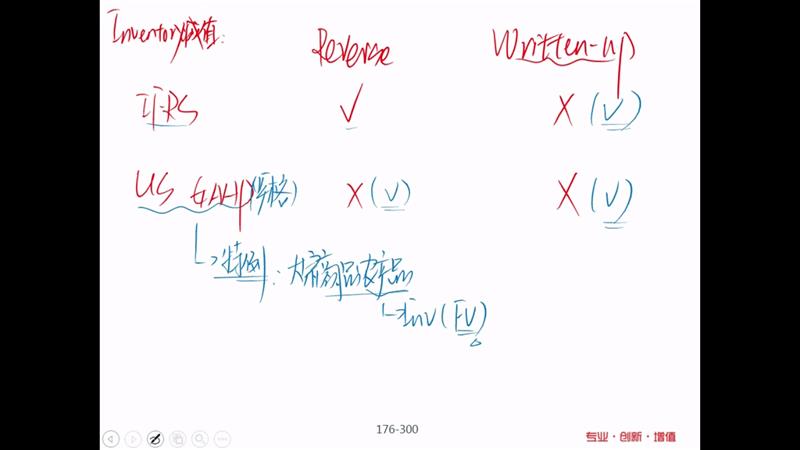 Inventory减值:
Reverse Written-up
IFRS ✓ X (✓)
US GAAP(严格) X (✓) X (✓)
↳特例:大宗商品农产品
↳Inv (FV)
176-300
专业·创新·增值